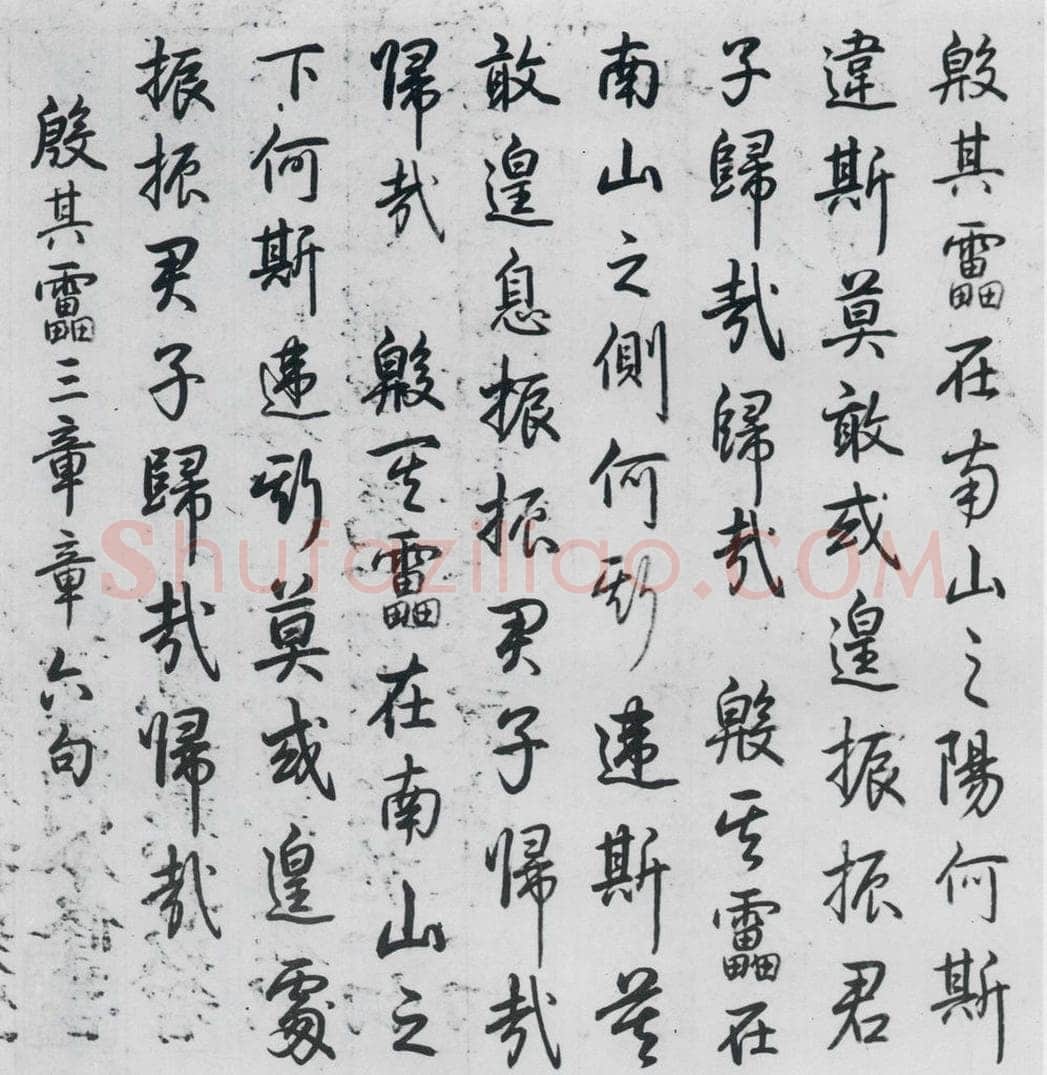 殷其靁在南山之陽何斯
違斯莫敢或遑振振君
子歸哉歸哉 殷其靁在
南山之側何斯違斯莫
敢遑息振振君子歸哉
歸哉 殷其靁在南山之
下何斯違斯莫或遑處
振振君子歸哉歸哉
殷其靁三章章六句
Shufaziliao.COM